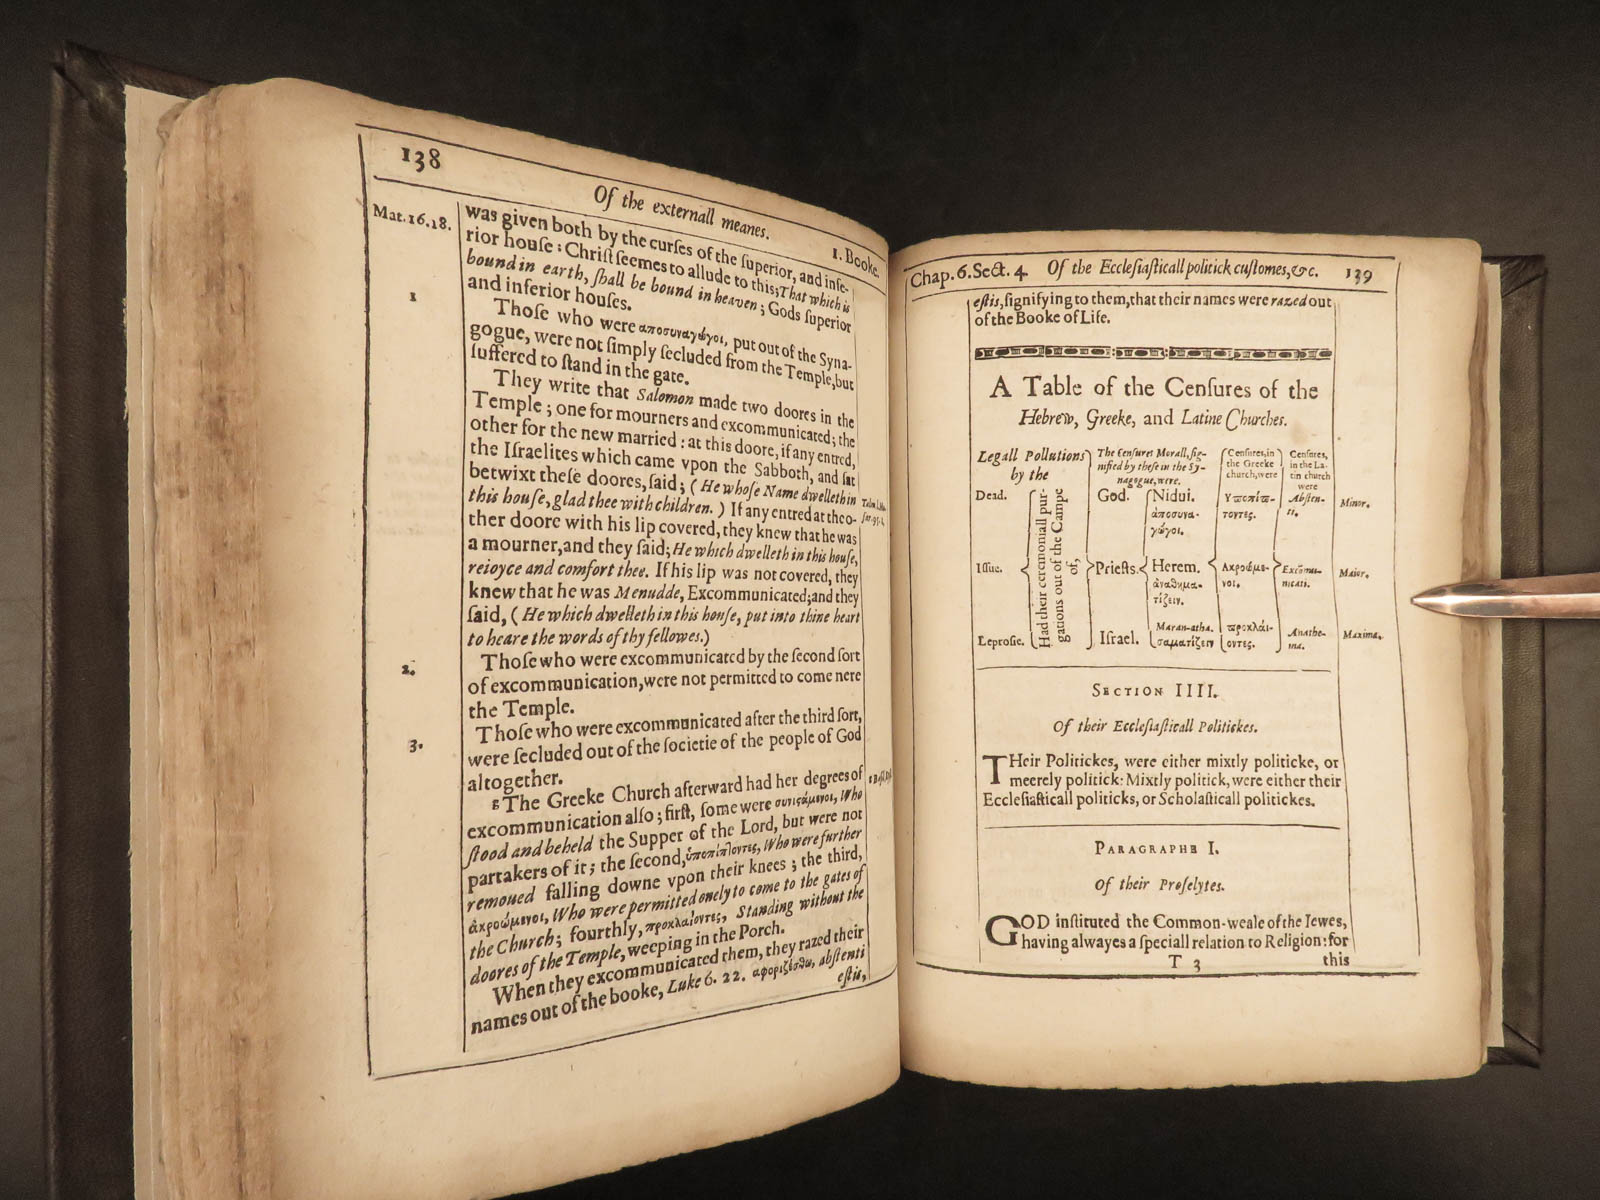 138
Of the externall meanes.
1. Booke.
Mat. 16. 18.
was given both by the curſes of the ſuperior, and infe-
rior houſe: Chriſt ſeemes to allude to this; That which is
bound in earth, ſhall be bound in heaven; Gods ſuperior
and inferior houſes.
1
Thoſe who were αποσυναγώγοι, put out of the Syna-
gogue, were not ſimply ſecluded from the Temple, but
ſuffered to ſtand in the gate.
They write that Salomon made two doores in the
Temple; one for mourners and excommunicated; the
other for the new married: at this doore, if any entred,
the Iſraelites which came vpon the Sabboth, and ſat
betwixt theſe doores, ſaid; (He whoſe Name dwelleth in
this houſe, glad thee with children.) If any entred at the o-
ther doore with his lip covered, they knew that he was
a mourner, and they ſaid; He which dwelleth in this houſe,
reioyce and comfort thee. If his lip was not covered, they
knew that he was Menudde, Excommunicated; and they
ſaid, (He which dwelleth in this houſe, put into thine heart
to heare the words of thy fellowes.)
2.
Thoſe who were excommunicated by the ſecond ſort
of excommunication, were not permitted to come nere
the Temple.
3.
Thoſe who were excommunicated after the third ſort,
were ſecluded out of the ſocietie of the people of God
altogether.
g The Greeke Church afterward had her degrees of
excommunication alſo; firſt, ſome were συνιςάμενοι, Who
ſtood and beheld the Supper of the Lord, but were not
partakers of it; the ſecond, ὑποπίπλοντες, Who were further
remoued falling downe vpon their knees; the third,
ἀκροώμενοι, Who were permitted onely to come to the gates of
the Church; fourthly, προκλαίοντες, Standing without the
doores of the Temple, weeping in the Porch.
When they excommunicated them, they razed their
names out of the booke, Luke 6. 22. αφοριζέσθω, abſtenti
eſtis,
Chap. 6. Sect. 4. Of the Eccleſiaſticall politick cuſtomes, &c. 139
eſtis, ſignifying to them, that their names were razed out
of the Booke of Life.
A Table of the Cenſures of the
Hebrew, Greeke, and Latine Churches.
Legall Pollutions
by the
Dead.
Iſſue.
Leproſie.
Had their ceremoniall pur-
gations out of the Campe
of,
The Cenſures Morall, ſig-
nified by theſe in the Sy-
nagogue, were.
God.
Prieſts.
Iſrael.
Nidui.
ἀποσυνα-
γώγοι.
Herem.
ἀναθημα-
τίζειν.
Maran-atha.
σαματίζειν
Cenſures, in
the Greeke
church, were
Υποπίπ-
τοντες.
Ακροώμε-
νοι.
προκλάι-
οντες.
Cenſures,
in the La-
tin church
were
Abſten-
ti.
Excōmu-
nicati.
Anathe-
ma.
Minor.
Maior.
Maxima.
SECTION IIII.
Of their Eccleſiaſticall Politickes.
THeir Politickes, were either mixtly politicke, or
meerely politick: Mixtly politick, were either their
Eccleſiaſticall politicks, or Scholaſticall politickes.
PARAGRAPHE I.
Of their Proſelytes.
GOD inſtituted the Common-weale of the Iewes,
having alwayes a ſpeciall relation to Religion: for
T 3
this